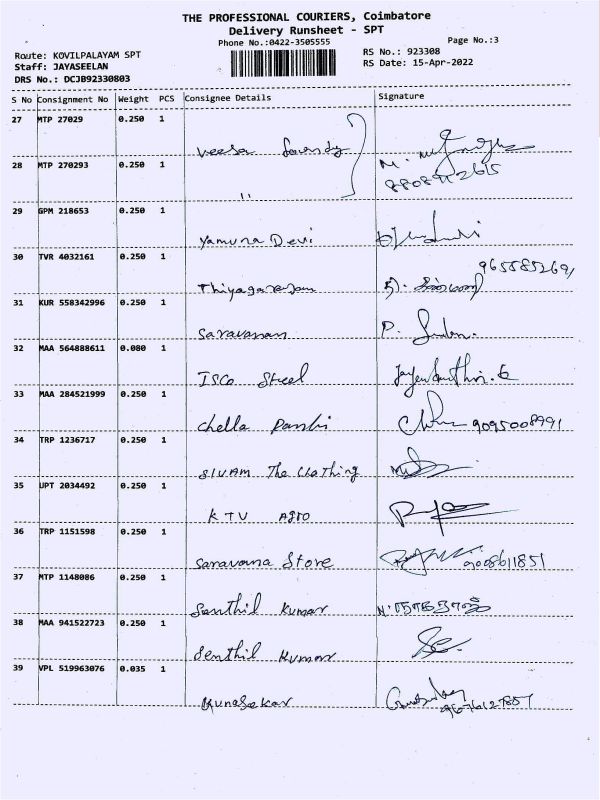 THE PROFESSIONAL COURIERS, Coimbatore
Delivery Runsheet - SPT
Phone No.:0422-3505555
Page No.:3
Route: KOVILPALAYAM SPT
RS No.: 923308
Staff: JAYASEELAN
RS Date: 15-Apr-2022
DRS No.: DCJB92330803
S No Consignment No Weight PCS Consignee Details Signature
27 MTP 27029 0.250 1 Veesa
28 MTP 270293 0.250 1 "
29 GPM 218653 0.250 1 Yamuna Devi
30 TVR 4032161 0.250 1 Thiyagarajan
31 KUR 558342996 0.250 1 Saravanan P.
32 MAA 564888611 0.080 1 ISCO Steel
33 MAA 284521999 0.250 1 Chella Pandi 9095008991
34 TRP 1236717 0.250 1 SIVAM The Clothing
35 UPT 2034492 0.250 1 KTV Agro
36 TRP 1151598 0.250 1 Saravana Store
37 MTP 1148086 0.250 1 Senthil Kumar
38 MAA 941522723 0.250 1 Senthil Kumar
39 VPL 519963076 0.035 1 Gunasekar